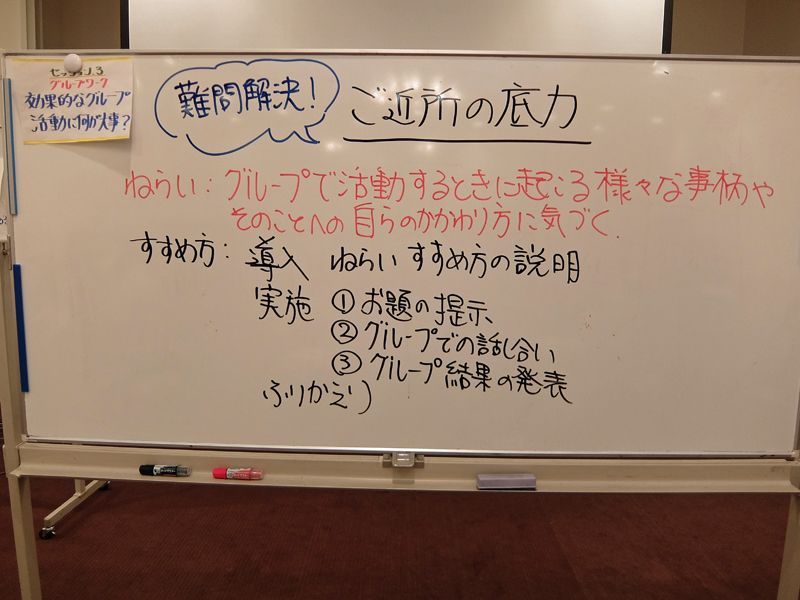 セッション3
グループワーク
効果的なグループ
活動に何が大事?
難問解決! ご近所の底力
ねらい:グループで活動するときに起こる様々な事柄や
そのことへの自らのかかわり方に気づく.
すすめ方: 導入 ねらい すすめ方の説明
実施 ①お題の提示、
②グループでの話し合い
③グループ結果の発表
ふりかえり